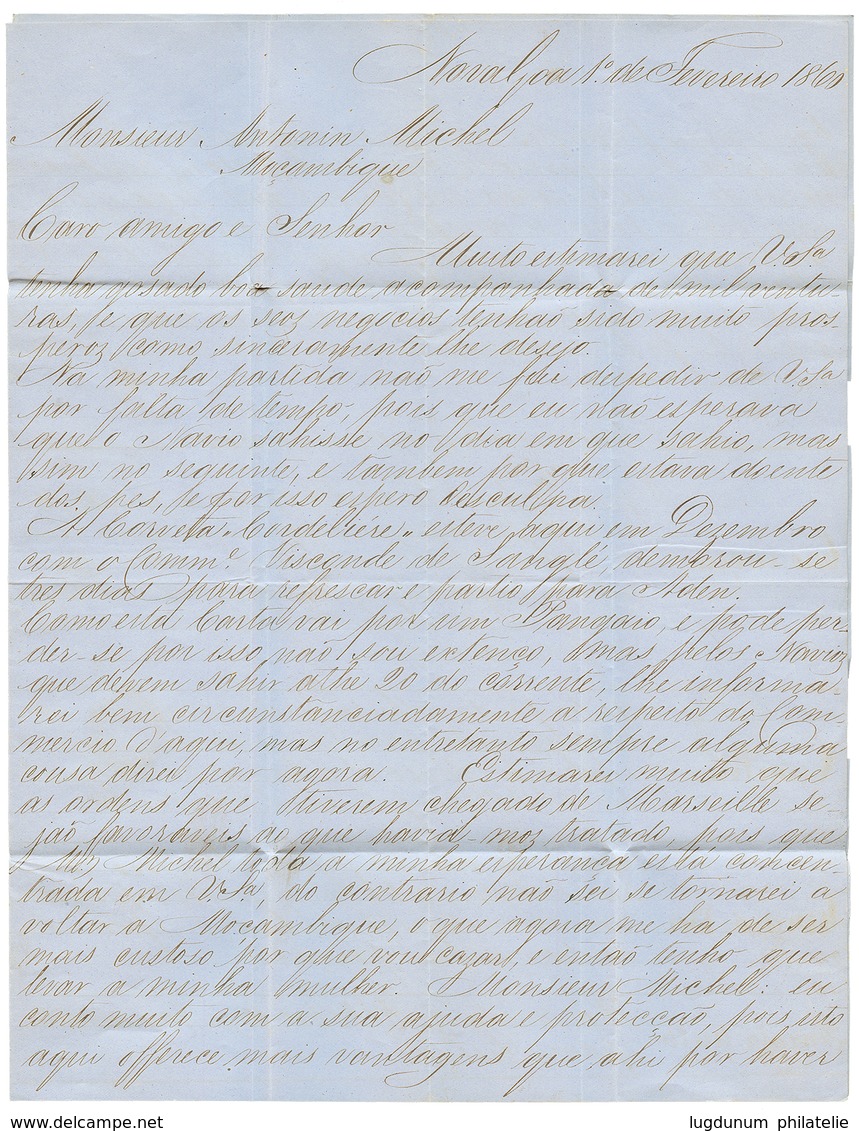 Nova Goa 1º de Fevereiro 1860
Monsieur Antonin Michel
Moçambique
Caro amigo e Senhor
Muito estimarei que V.Sª
tenha gosado boa saude acompanhada de mil ventu-
ras, e que os seoz negocios tenhaõ sido muito pros-
peroz como sinceramente lhe desejo.
Na minha partida naõ me fui despedir de V.Sª
por falta de tempo, pois que eu naõ esperava
que o Navio sahisse no dia em que sahio, mas
sim no seguinte, e tambem por que estava doente
dos pes, e por isso espero desculpa.
A Corveta "Cordeliére" esteve aqui em Dezembro
com o Comm.e Visconde de Langlé demorou-se
tres dias para refrescar e partio para Aden.
Como esta Carta vai por um Pangaio, e póde per-
der-se por isso naõ sou extenço, mas pelos Navioz
que devem sahir athe 20 do córrente, lhe informa-
rei bem circunstanciadamente a respeito do Com-
mercio d'aqui, mas no entretanto sempre alguma
cousa direi por agora. Estimarei muito que
as ordens que tiverem chegado de Marseille se-
jaõ favoraveis ao que haviamoz tratado pois que
Mr. Michel toda a minha esperança está concen-
trada em V.Sª, do contrario naõ sei si tornarei a
voltar a Moçambique, o que agora me ha de ser
mais custoso por que vou cazar, e entaõ tenho que
levar a minha mulher. Monsieur Michel: eu
conto muito com a sua ajuda e protecçaõ, pois isto
aqui offerece mais vantagens que ahi por haver
lugdunum philatelie